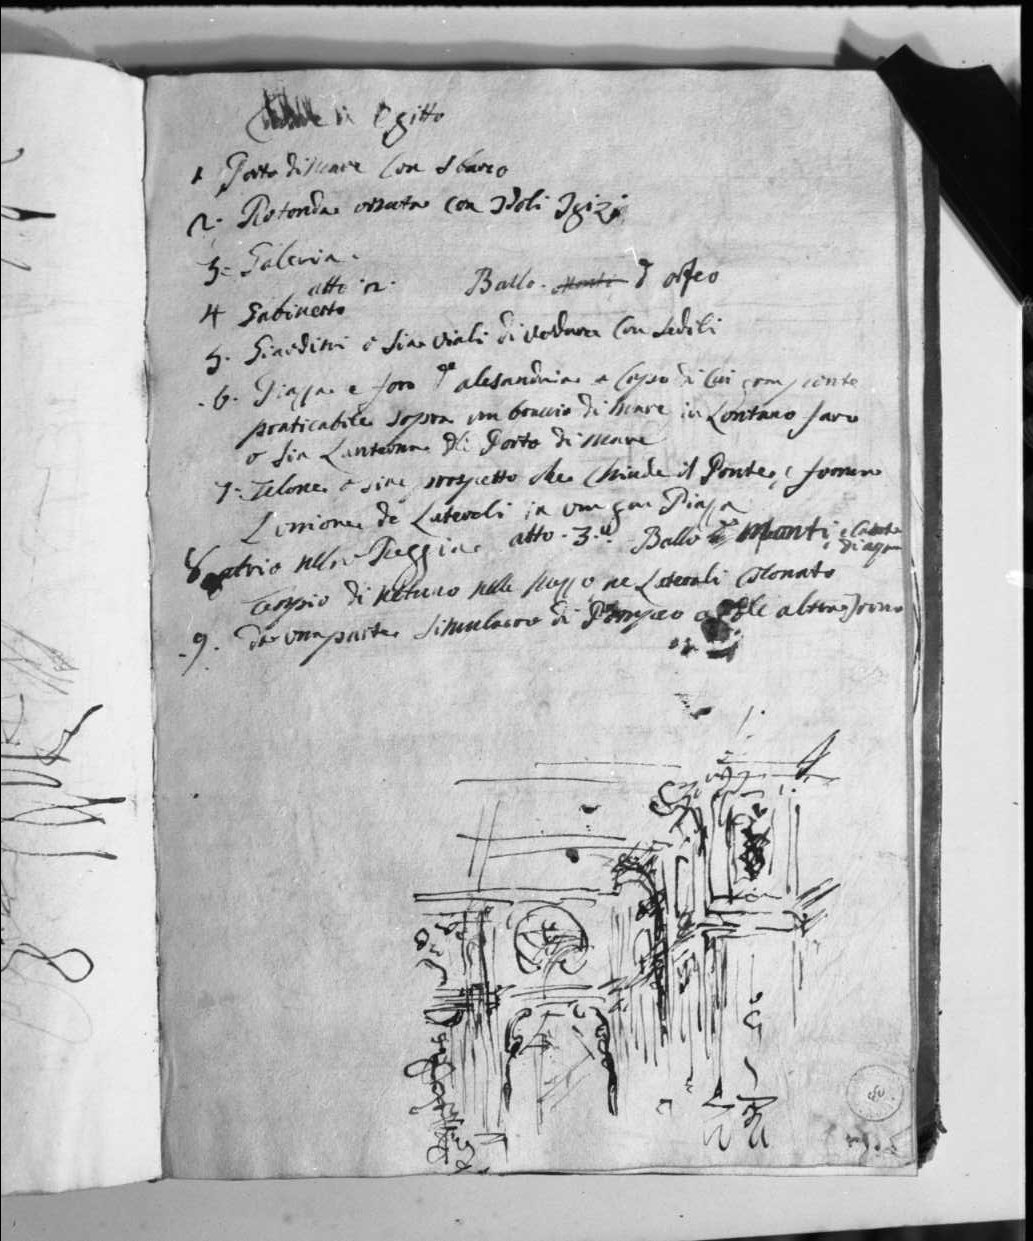 in Egitto
1 Porto di Mare Con Sbarco
2. Rotonda ornata con Idoli Egizi
3. Galeria.
atto 2. Ballo. Monti d orfeo
4 Gabinetto
5. Giardini o sia viali di verdura Con Sedili
.6. Piazza e foro d' alesandria a Capo di Cui gran ponte
praticabile sopra un braccio di Mare in Lontano faro
o sia Lanterna di Porto di Mare
7. Telone o sia prospetto che Chiude il Ponte, e forma
Unione de Laterali in una gran Piaza
8 atrio nella Reggia. atto. 3. Ballo Monti e
Tempio di Netuno nelle mezzo ne Laterali Colonato
.9. da una parte Simulacro di Pompeo e l altra